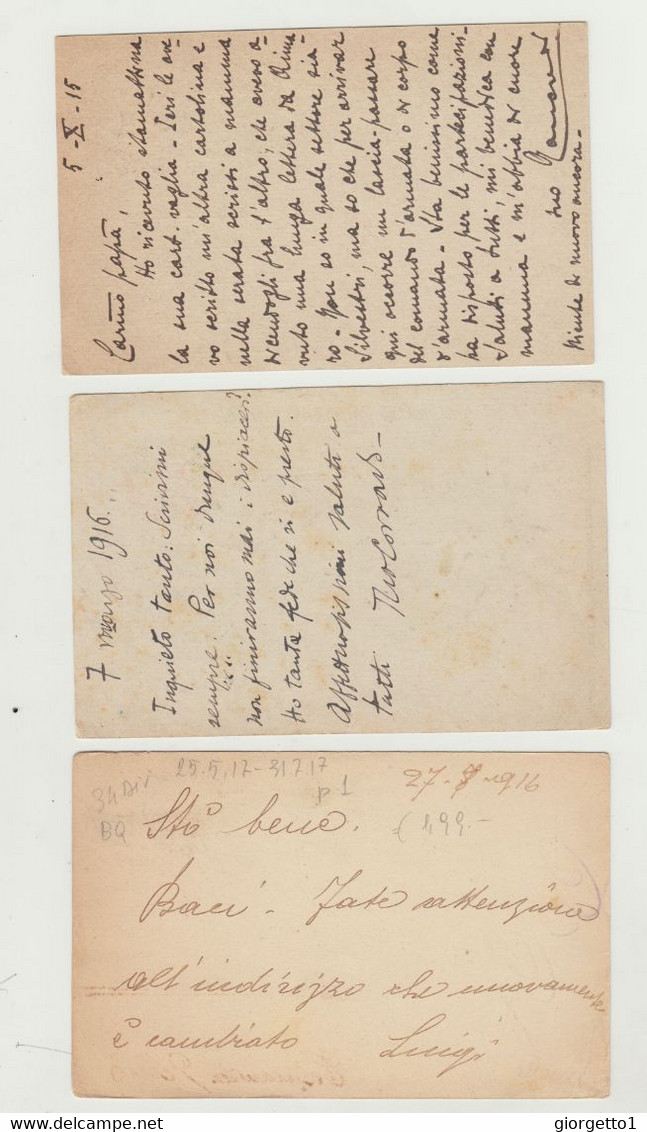 5-X-15
Carmo papà,
Ho ricevuto stamattina
la sua cart. vaglia - Ieri le ave-
vo scritto un'altra cartolina e
nella serata scrissi a mamma
dicendogli fra l'altro, che avevo a-
vuto una lunga lettera da
ro - Non so in quale settore sia
Silvestri, ma so che per arrivar
qui occorre un lascia-passare
del comando d'armata o di corpo
d'armata - Sta benissimo come
ha disposto per le partecipazioni -
Saluti a tutti, mi benedica con
mamma e m'abbia di cuore
suo
Niente di nuovo ancora -
7 marzo 1916...
Inquieto tanto: Scrivimi
sempre. Per noi dunque
non finiranno mai i dispiaceri?
Ho tanta fede che sì e presto.
Affettuosissimi saluti a
tutti Tuo Corrado -
25.5.17-31717
34 Div
p 1
27-7-1916
BQ
€ 499.-
Stò bene.
Baci - Fate attenzione
all'indirizzo che nuovamente
è cambiato Luigi
delcampe.net
giorgetto1